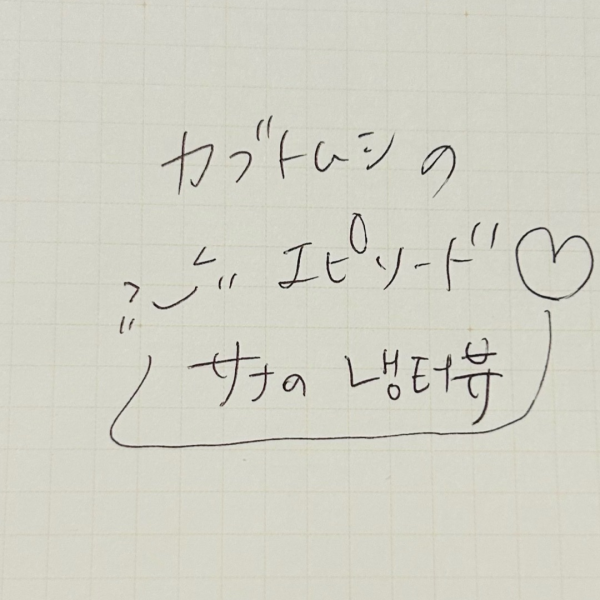 カブトムシの
エピソード♡
サナの 냉터뷰